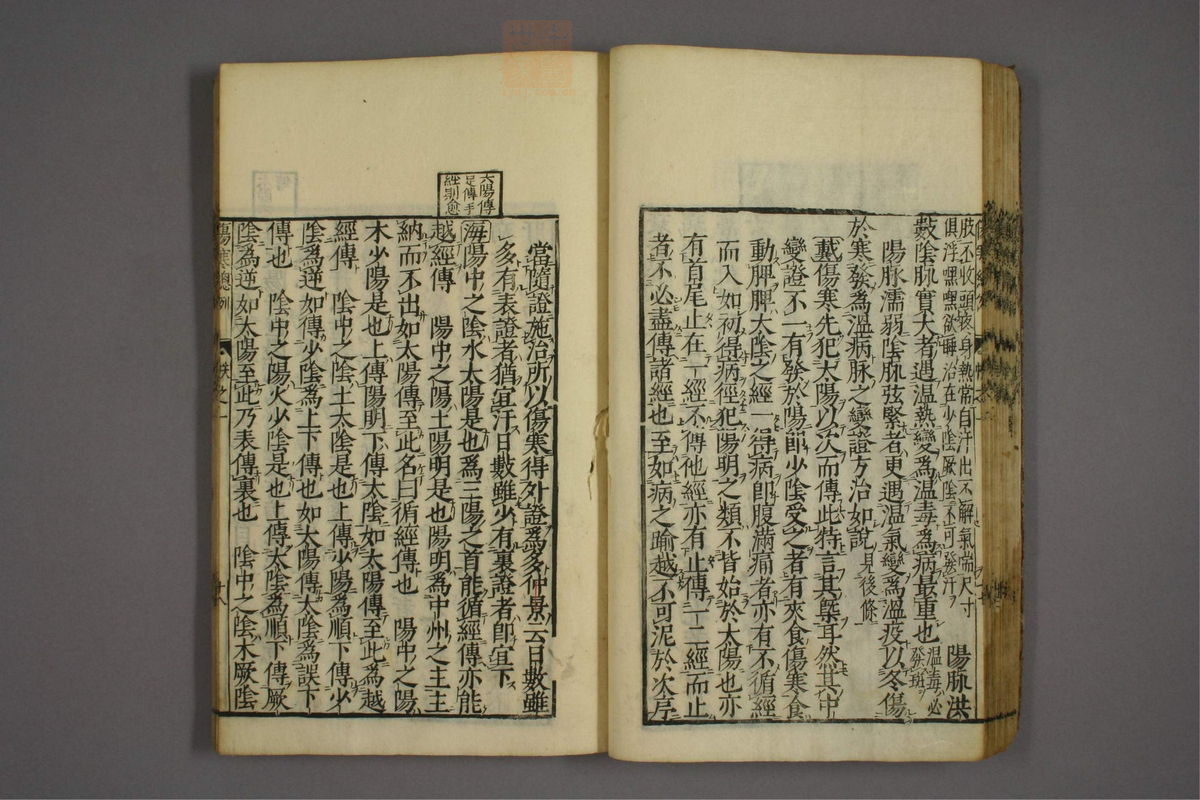 肢不收頭疼身熱常自汗出不解氣喘尺寸
俱浮嘿嘿欲睡治在少陰厥陰不可發汗
陽脉洪
數陰脉實大者遇溫熱變爲溫毒爲病最重也
溫毒必
發斑
陽脉濡弱陰脉弦緊者更遇溫氣變爲溫疫以冬傷
於寒發爲溫病脉之變證方治如說見後條
戴傷寒先犯太陽以次而傳此特言其槩耳然其中
變證不一有發於陽卽少陰受之者有夾食傷寒食
動脾脾太陰之經一得病卽腹滿痛者亦有不循經
而入如初得病徑犯陽明之類不皆始於太陽也亦
有首尾止在一經不傳他經亦有止傳一二經而止
者不必盡傳諸經也至如病之踰越不可泥於次序
太陽傳
足傳手
經則愈
當隨證施治所以傷寒得外證爲多仲景云日數雖
多有表證者猶宜汗日數雖少有裏證者卽宜下
海陽中之陰水太陽是也爲三陽之首能循經傳亦能
越經傳　陽中之陽土陽明是也陽明爲中州之主主
納而不出如太陽傳至此名曰循經傳也　陽中之陽
木少陽是也上傳陽明下傳太陰如太陽傳至此爲越
經傳　陰中之陰土太陰是也上傳少陽爲順下傳少
陰爲逆如傳少陰爲上下傳也如太陽傳太陰爲誤下
傳也　陰中之陽火少陰是也上傳太陰爲順下傳厥
陰爲逆如太陽至此乃表傳裏也　陰中之陰木厥陰
傷寒總例
帙之一